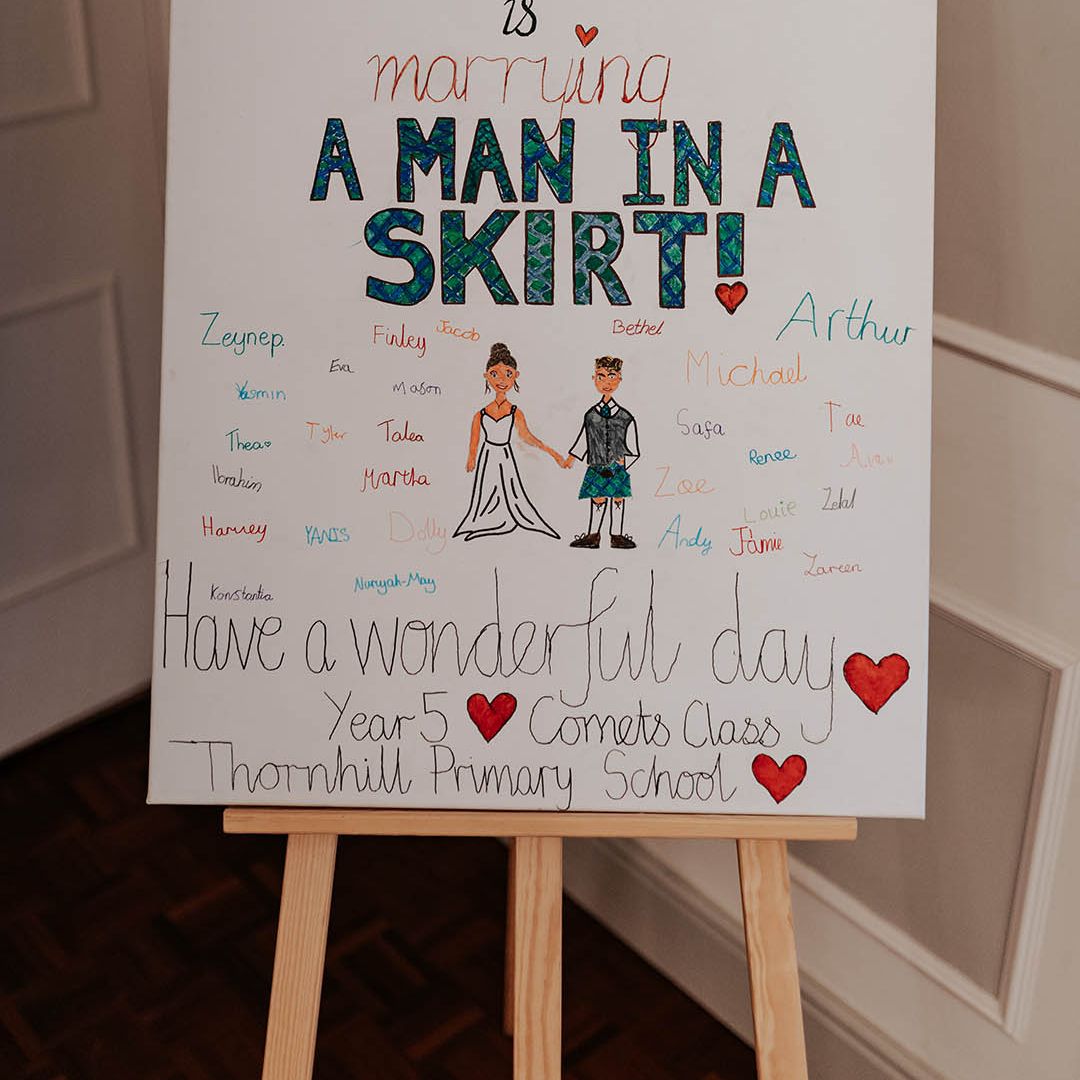 is
marrying
A MAN IN A
SKIRT!
Zeynep.
Finley
Jacob
Bethel
Arthur
Eva
Michael
Yasmin
Mason
Safa
Tae
Thea
Tyler
Talea
Renee
Ava
Ibrahim
Martha
Zoe
Zelal
Louie
Harvey
YANIS
Dolly
Andy
Jamie
Zareen
Konstantia
Nuriyah-May
Have a wonderful day
Year 5 Comets Class
Thornhill Primary School